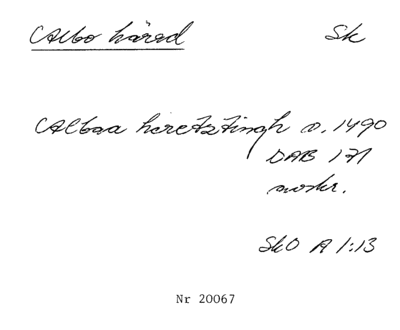 Albo härad Sk
Alboa heretztingh o. 1490
DAB 171
avskr.
SkO A 1:13
Nr 20067